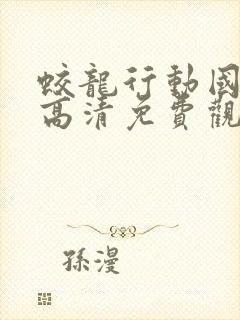 蛟龍行動國
高清免費觀
孫漫